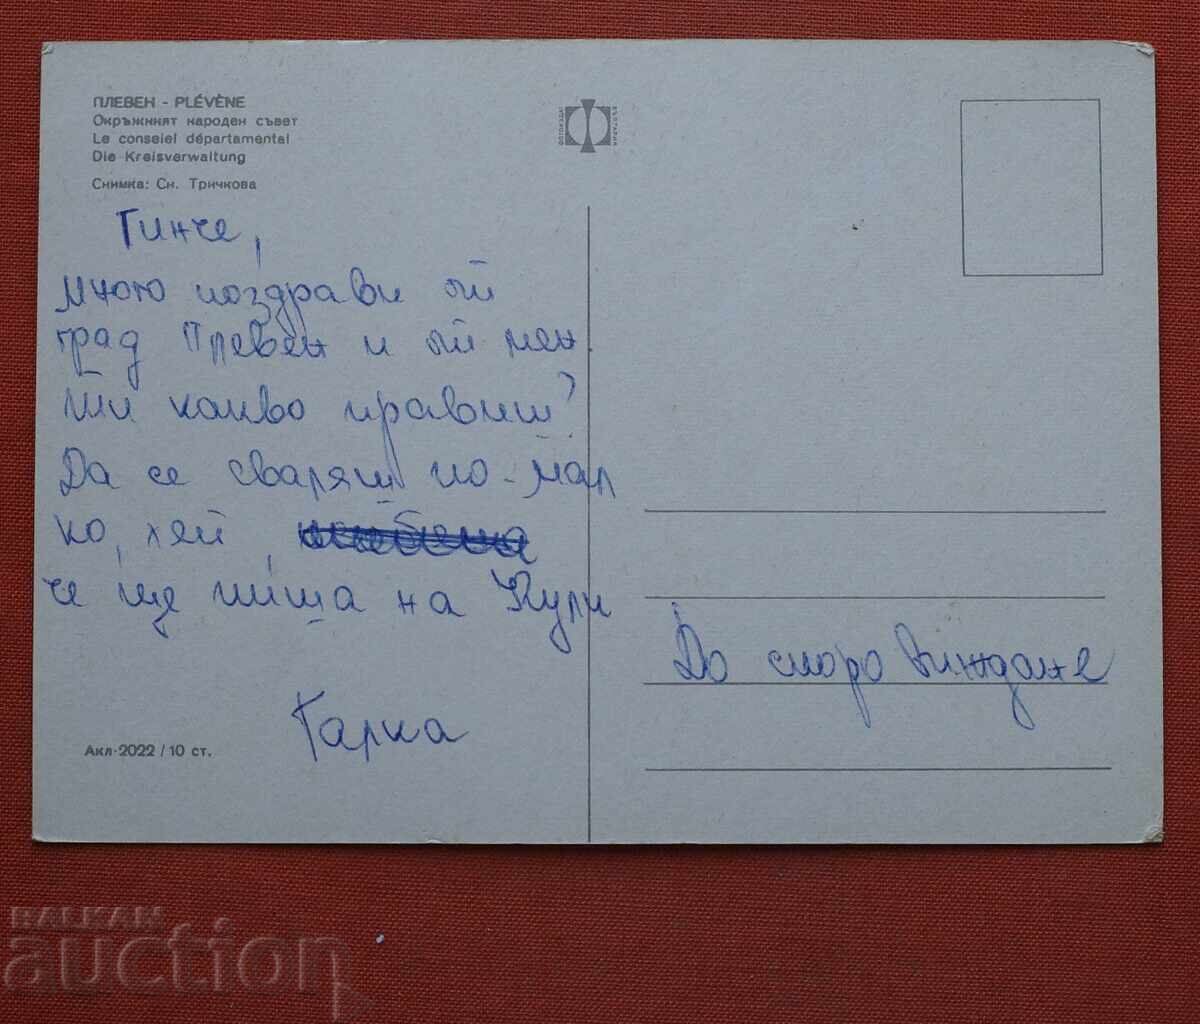 ПЛЕВЕН - PLÉVÈNE
Окръжният народен съвет
Le conseiel départamental
Die Kreisverwaltung
Снимка: Сн. Тричкова
Гинче,
много поздрави от
град Плевен и от мен.
Ти какво правиш?
Да се сваряш по-мал
ко, хей,
че ще пиша на Кули
Галка
Акл-2022/10 ст.
До скоро виждане
BALKAN
auction